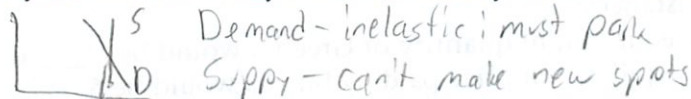 S Demand - inelastic; must park
D Supply - can't make new spots